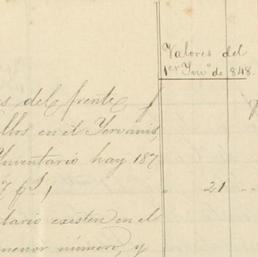 Valores del
1er Inv.o de 848.
es del frente
llos en el Yervanis
Inventario hay 187
21
ntario existen en el
menor número, y